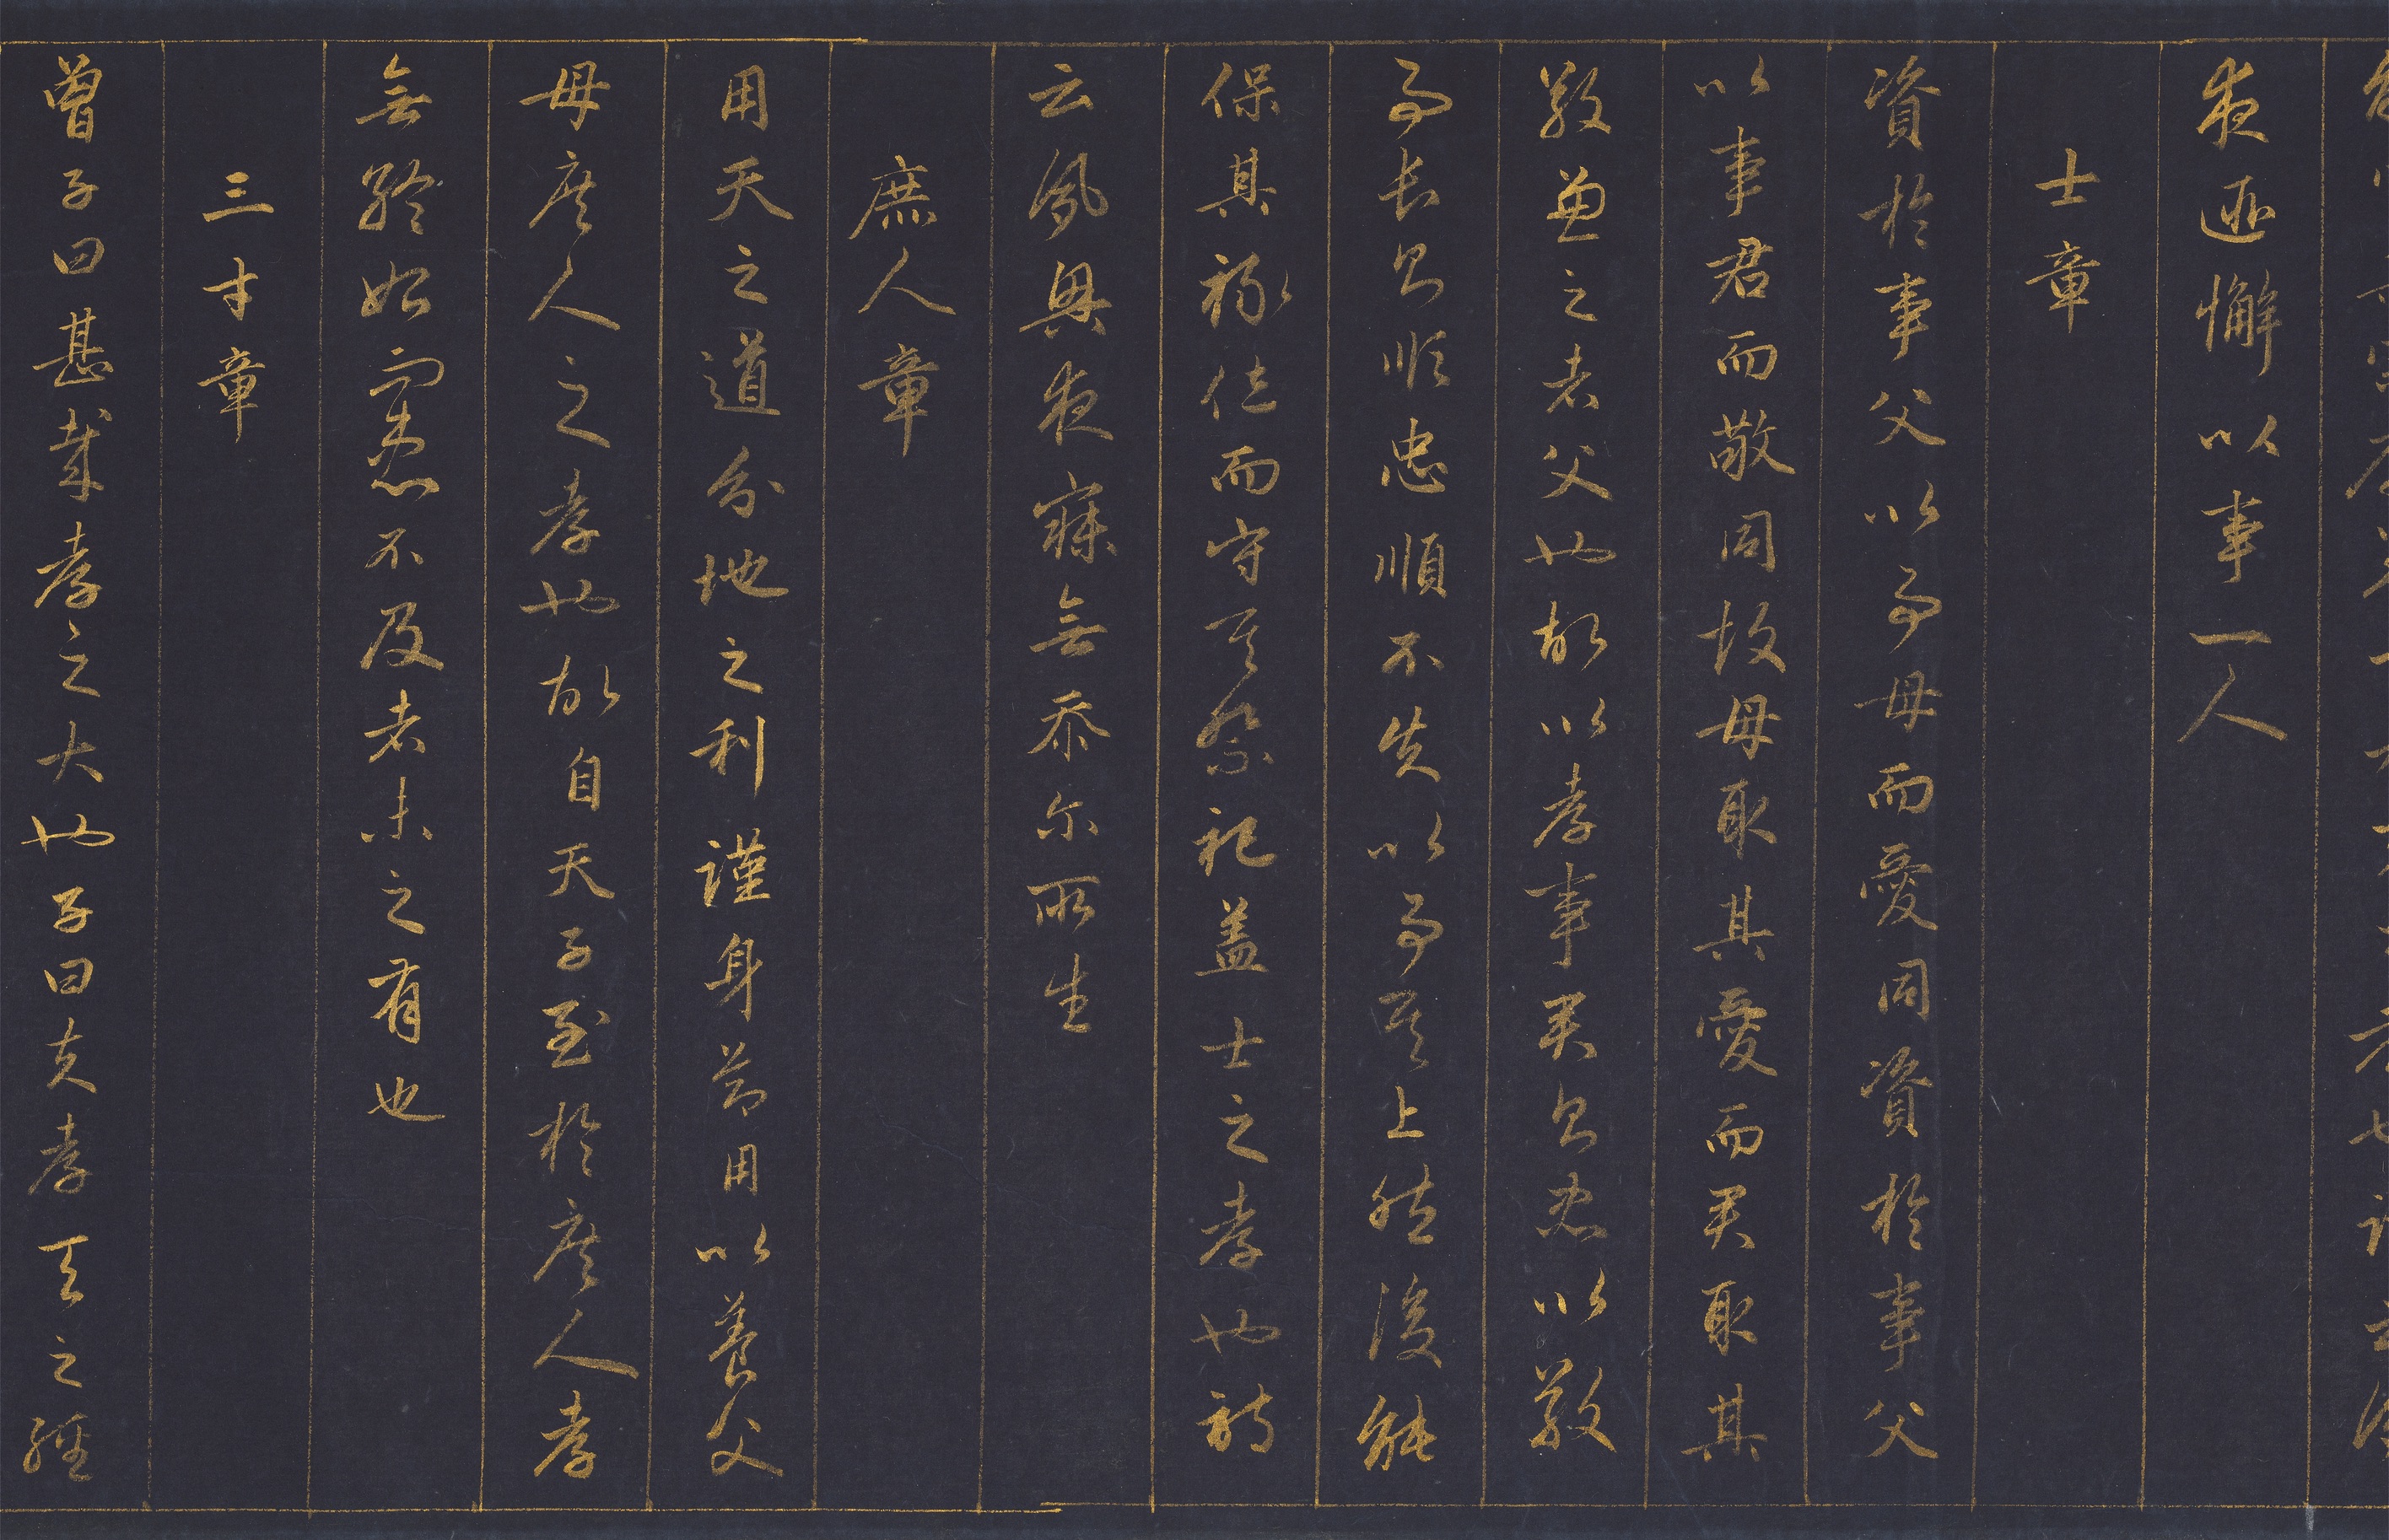 夜匪懈以事一人
士章
資於事父以事母而愛同資於事父
以事君而敬同故母取其愛而君取其
敬兼之者父也故以孝事君則忠以敬
事長則順忠順不失以事其上然後能
保其祿位而守其祭祀盖士之孝也詩
云夙興夜寐無忝尔所生
庶人章
用天之道分地之利謹身節用以養父
母庶人之孝也故自天子至於庶人孝
無終始而患不及者未之有也
三才章
曾子曰甚哉孝之大也子曰夫孝天之經